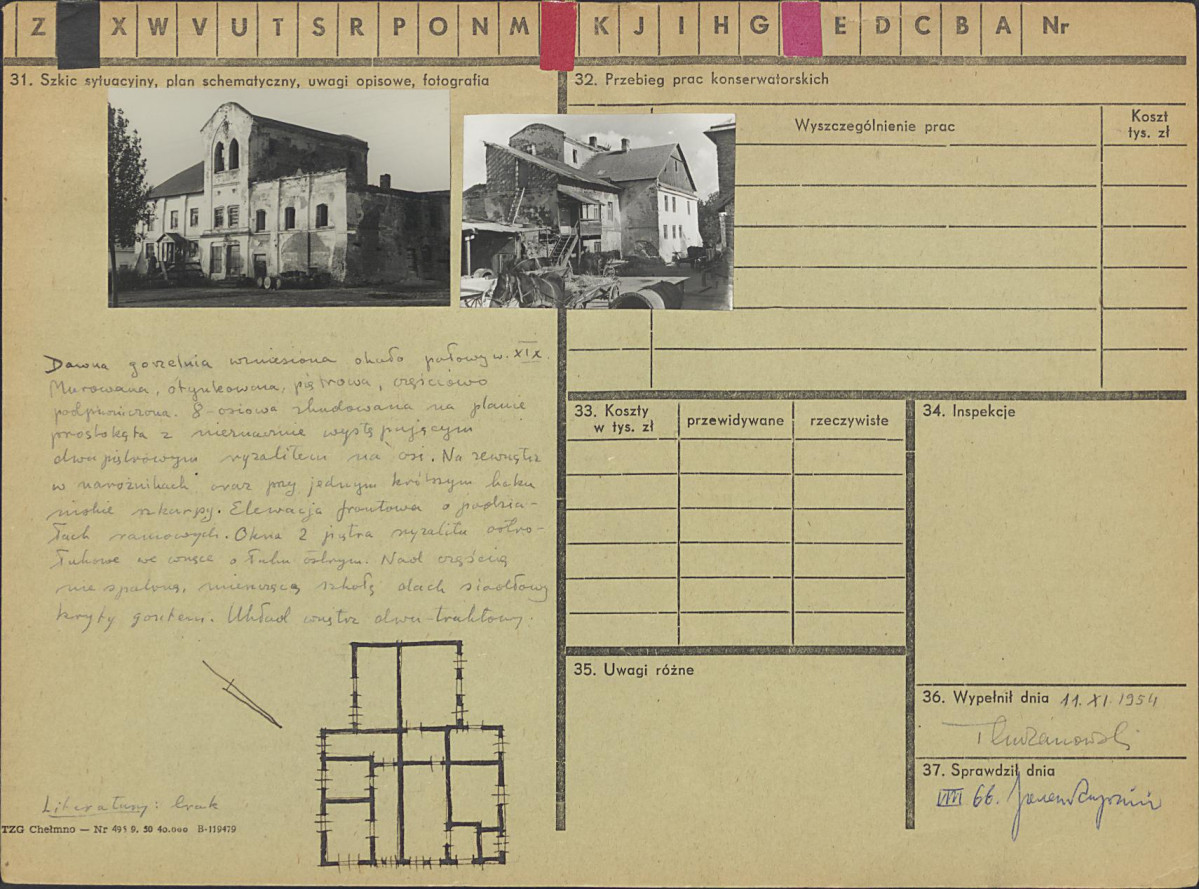 Z X W V U T S R P O N M K J I H G E D C B A Nr
31. Szkic sytuacyjny, plan schematyczny, uwagi opisowe, fotografia
Dawna gorzelnia wzniesiona około połowy w. XIX.
Murowana, otynkowana, piętrowa, częściowo
podpiwniczona. 8-osiowa zbudowana na planie
prostokąta z nieznacznie występującym
dwupiętrowym ryzalitem na osi. Na zewnątrz
w narożnikach oraz przy jednym krótszym boku
niskie szkarpy. Elewacja frontowa o podzia-
łach ramowych. Okna 2 piętra ryzalitu ostro-
łukowe we wnęce o łuku ostrym. Nad częścią
nie spaloną, mieszczącą szkołę dach siodłowy
kryty gontem. Układ wnętrz dwu-traktowy.
Literatury: brak
TZG Chełmno — Nr 495 9. 50 40.000 B-119479
32. Przebieg prac konserwatorskich
Wyszczególnienie prac
Koszt
tys. zł
33. Koszty
w tys. zł
przewidywane
rzeczywiste
34. Inspekcje
35. Uwagi różne
36. Wypełnił dnia 11. XI. 1954
37. Sprawdził dnia
VIII 66.